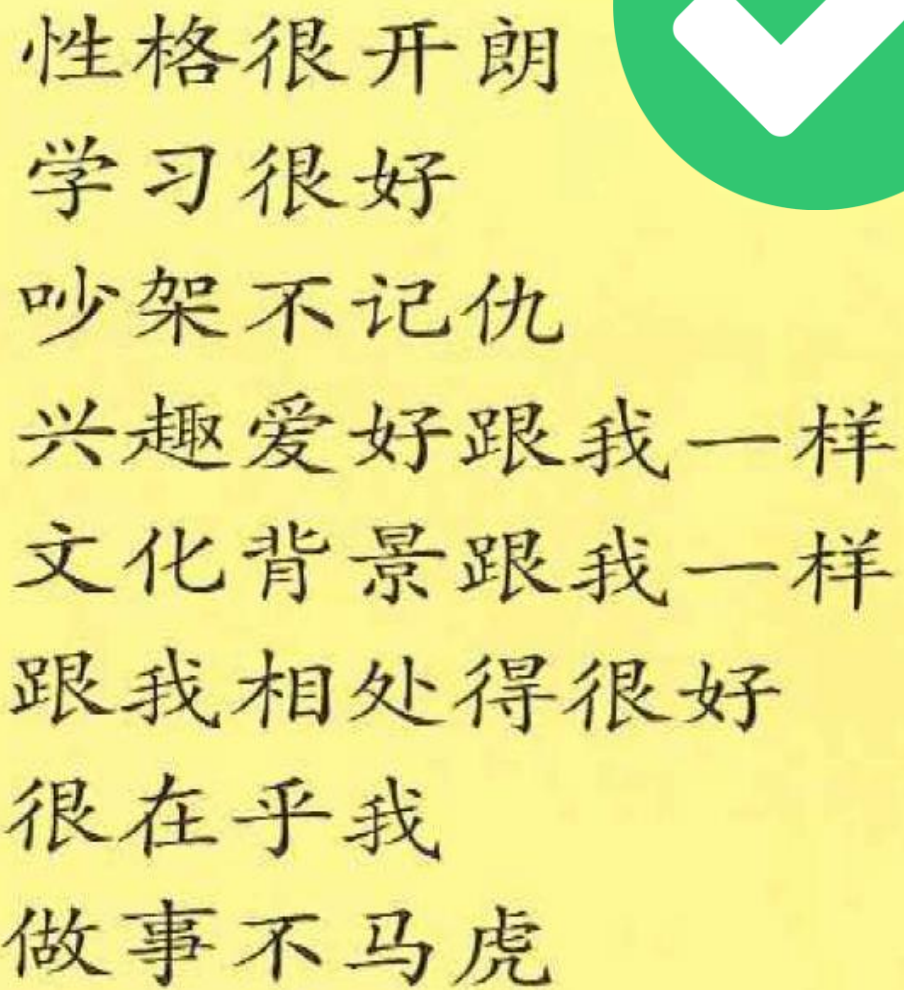 性格很开朗
学习很好
吵架不记仇
兴趣爱好跟我一样
文化背景跟我一样
跟我相处得很好
很在乎我
做事不马虎